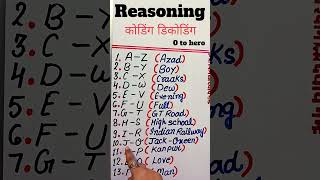 Reasoning
कोडिंग डिकोडिंग
0 to hero
1. A-Z (Azad)
2. B-Y (Boy)
3. C-X (Craaks)
4. D-W (Dew)
5. E-V (Evening)
6. F-U (Full)
7. G-T (GT Road)
8. H-S (High school)
9. I-R (Indian Railway)
10. J-Q (Jack-Qxeen)
11. P (Kanpur)
12. (Love)
13. Man)